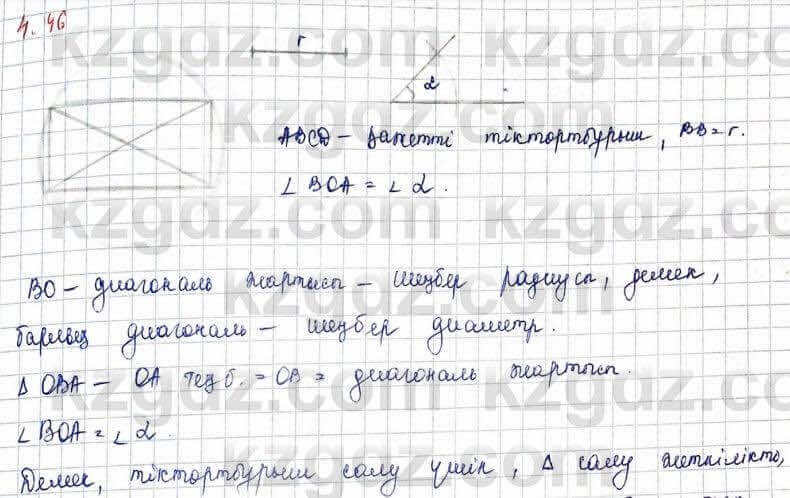 4.46
r
α
ABCD – дәнетті тіктөртбұрыш, BB = r.
∠ BOA = ∠ α.
BO – диагональ жартысы – шеңбер радиусы, демек,
барлық диагональ – шеңбер диаметр.
Δ OBA – OA тең б. = OB = диагональ жартысы.
∠ BOA = ∠ α.
Демек, тіктөртбұрыш салу үшін, Δ салу жеткілікті,
kzgdz.com